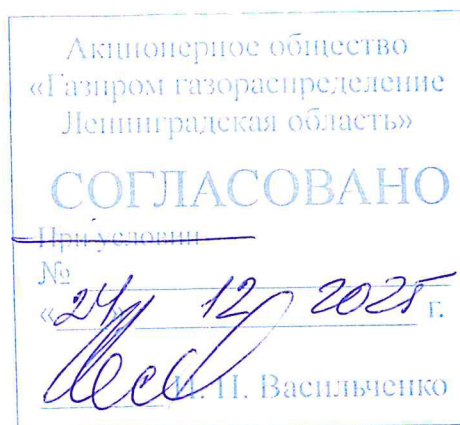 Акционерное общество
«Газпром газораспределение
Ленинградская область»
СОГЛАСОВАНО
При условии
№
«24» 12 2025 г.
И. П. Васильченко